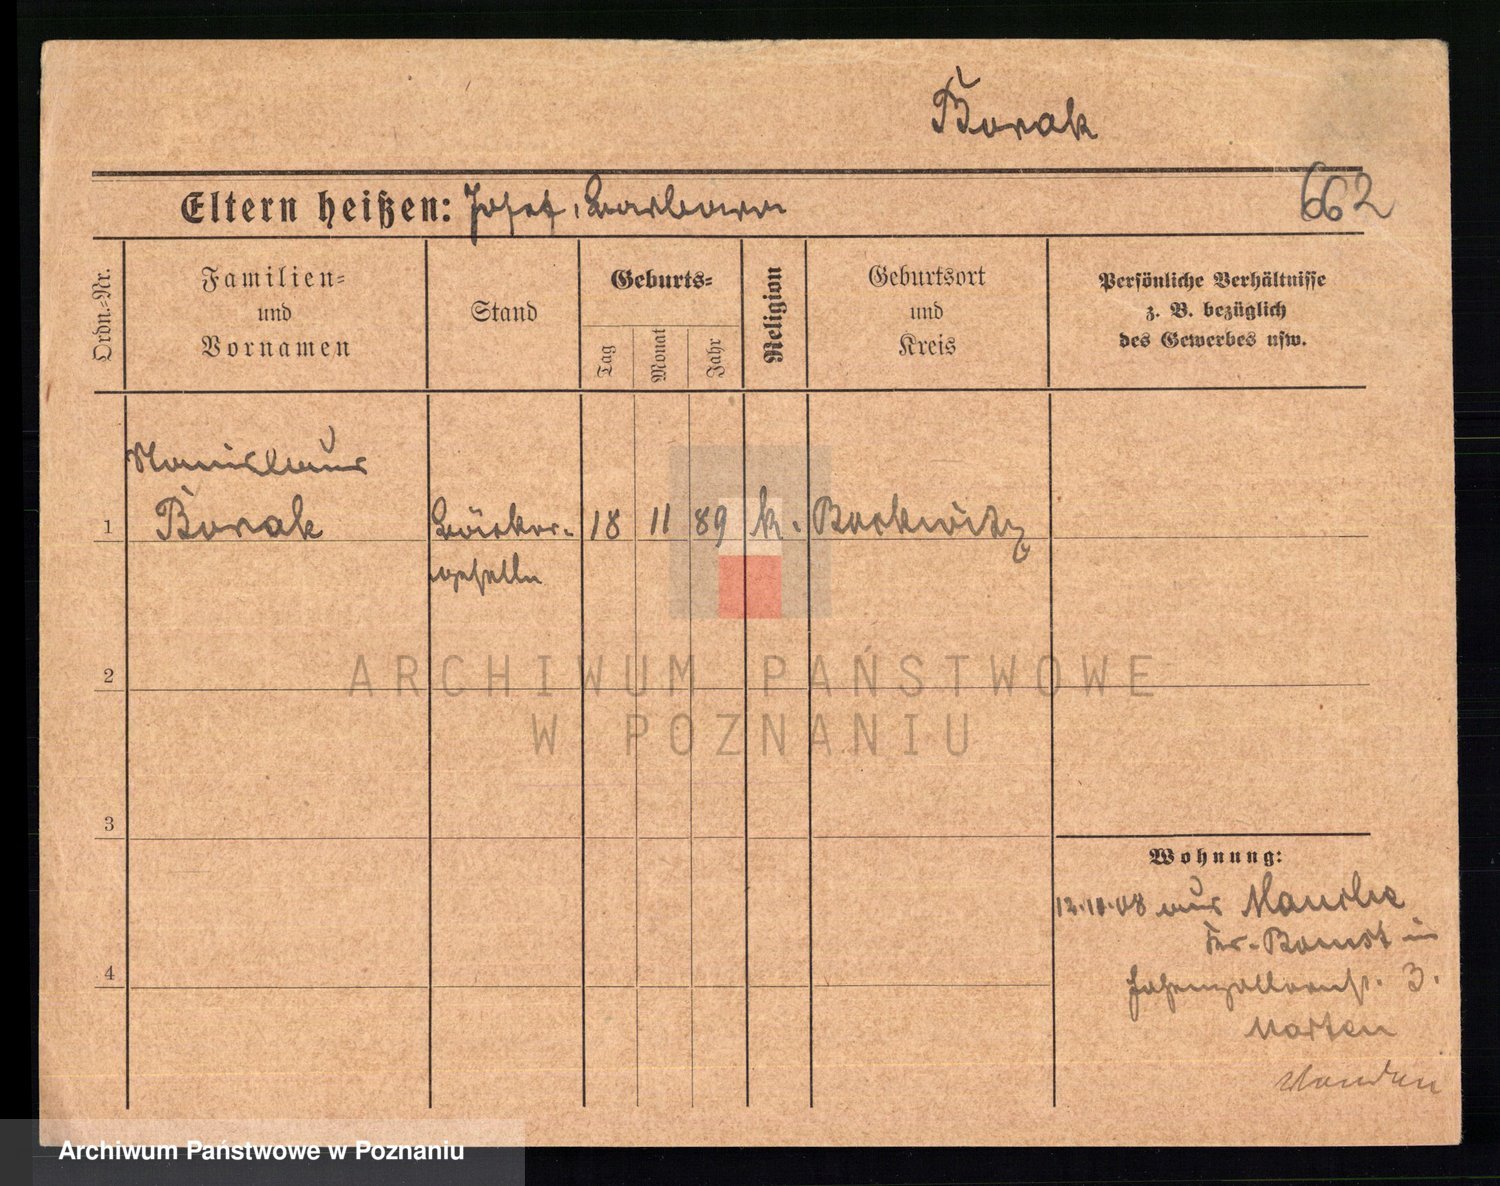 Borak
Eltern heißen: Josef, Barbara
662
Ordn.-Nr.
Familien-
und
Vornamen
Stand
Geburts-
Tag
Monat
Jahr
Religion
Geburtsort
und
Kreis
Persönliche Verhältnisse
z. B. bezüglich
des Gewerbes usw.
Stanislaus
1 Borak Bäcker- 18 11 89 k. Borkwitz
geselle
2
ARCHIWUM PAŃSTWOWE
W POZNANIU
3
Wohnung:
12.10.08 aus
Bomst in
Hohenzollernst. 3.
4
Archiwum Państwowe w Poznaniu